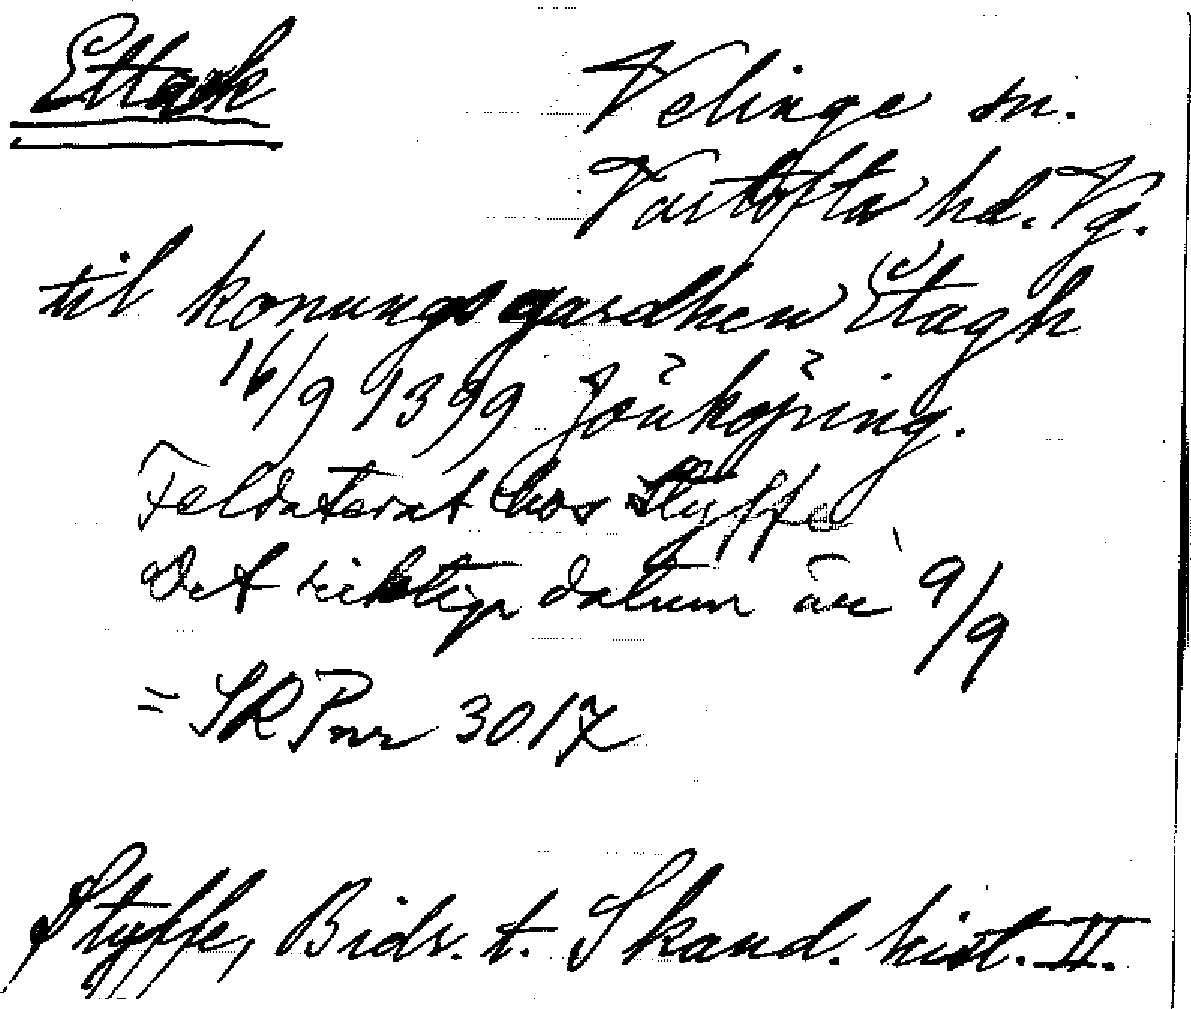 Ettack
Velinge sn.
Vartofta hd. Vg.
til konungsgardhen Etagh
16/9 1399 Jönköping.
Feldaterat hos Styffe
Det riktiga datum är 9/9
= SRPnr 3017
Styffe, Bidr. t. Skand. hist. II.